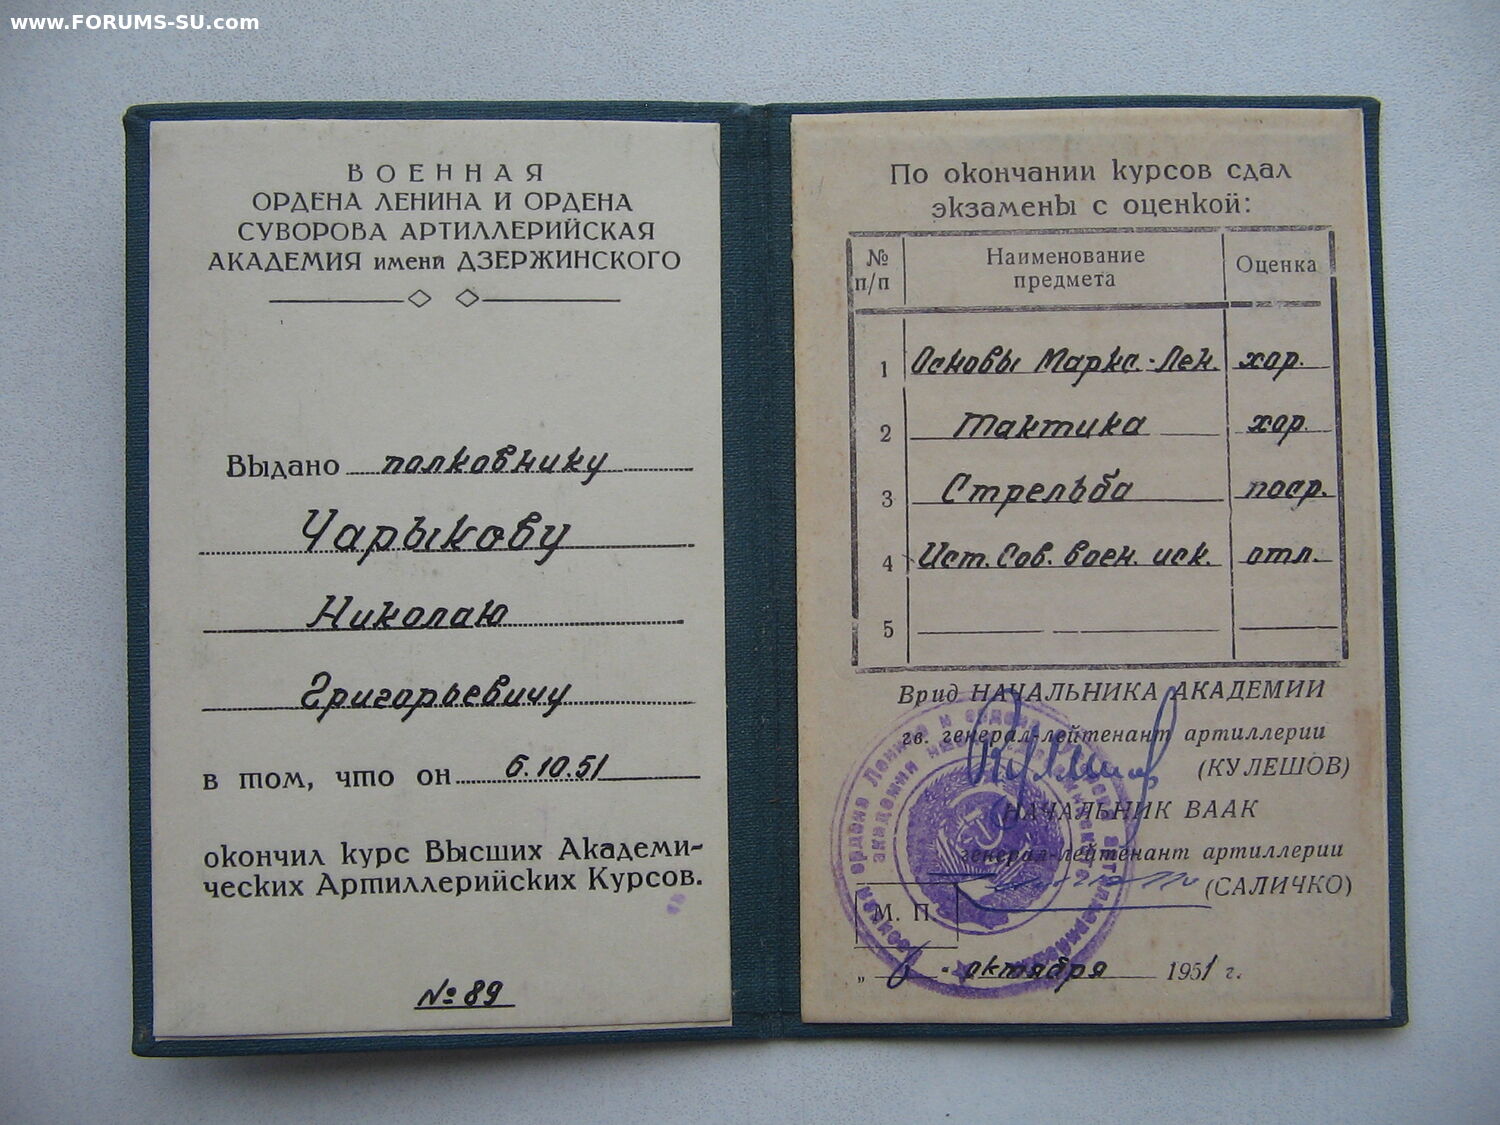 www.FORUMS-SU.com
ВОЕННАЯ
ОРДЕНА ЛЕНИНА И ОРДЕНА
СУВОРОВА АРТИЛЛЕРИЙСКАЯ
АКАДЕМИЯ имени ДЗЕРЖИНСКОГО
Выдано полковнику
Чарыкову
Николаю
Григорьевичу
в том, что он 6.10.51
окончил курс Высших Академи-
ческих Артиллерийских Курсов.
№ 89
По окончании курсов сдал
экзамены с оценкой:
№ п/п Наименование предмета Оценка
1 Основы Маркс.-Лен. хор.
2 Тактика хор.
3 Стрельба поср.
4 Ист. Сов. воен. иск. отл.
5
Врид НАЧАЛЬНИКА АКАДЕМИИ
гв. генерал-лейтенант артиллерии
(КУЛЕШОВ)
НАЧАЛЬНИК ВААК
генерал-лейтенант артиллерии
(САЛИЧКО)
М. П.
„ 6 " октября 1951 г.